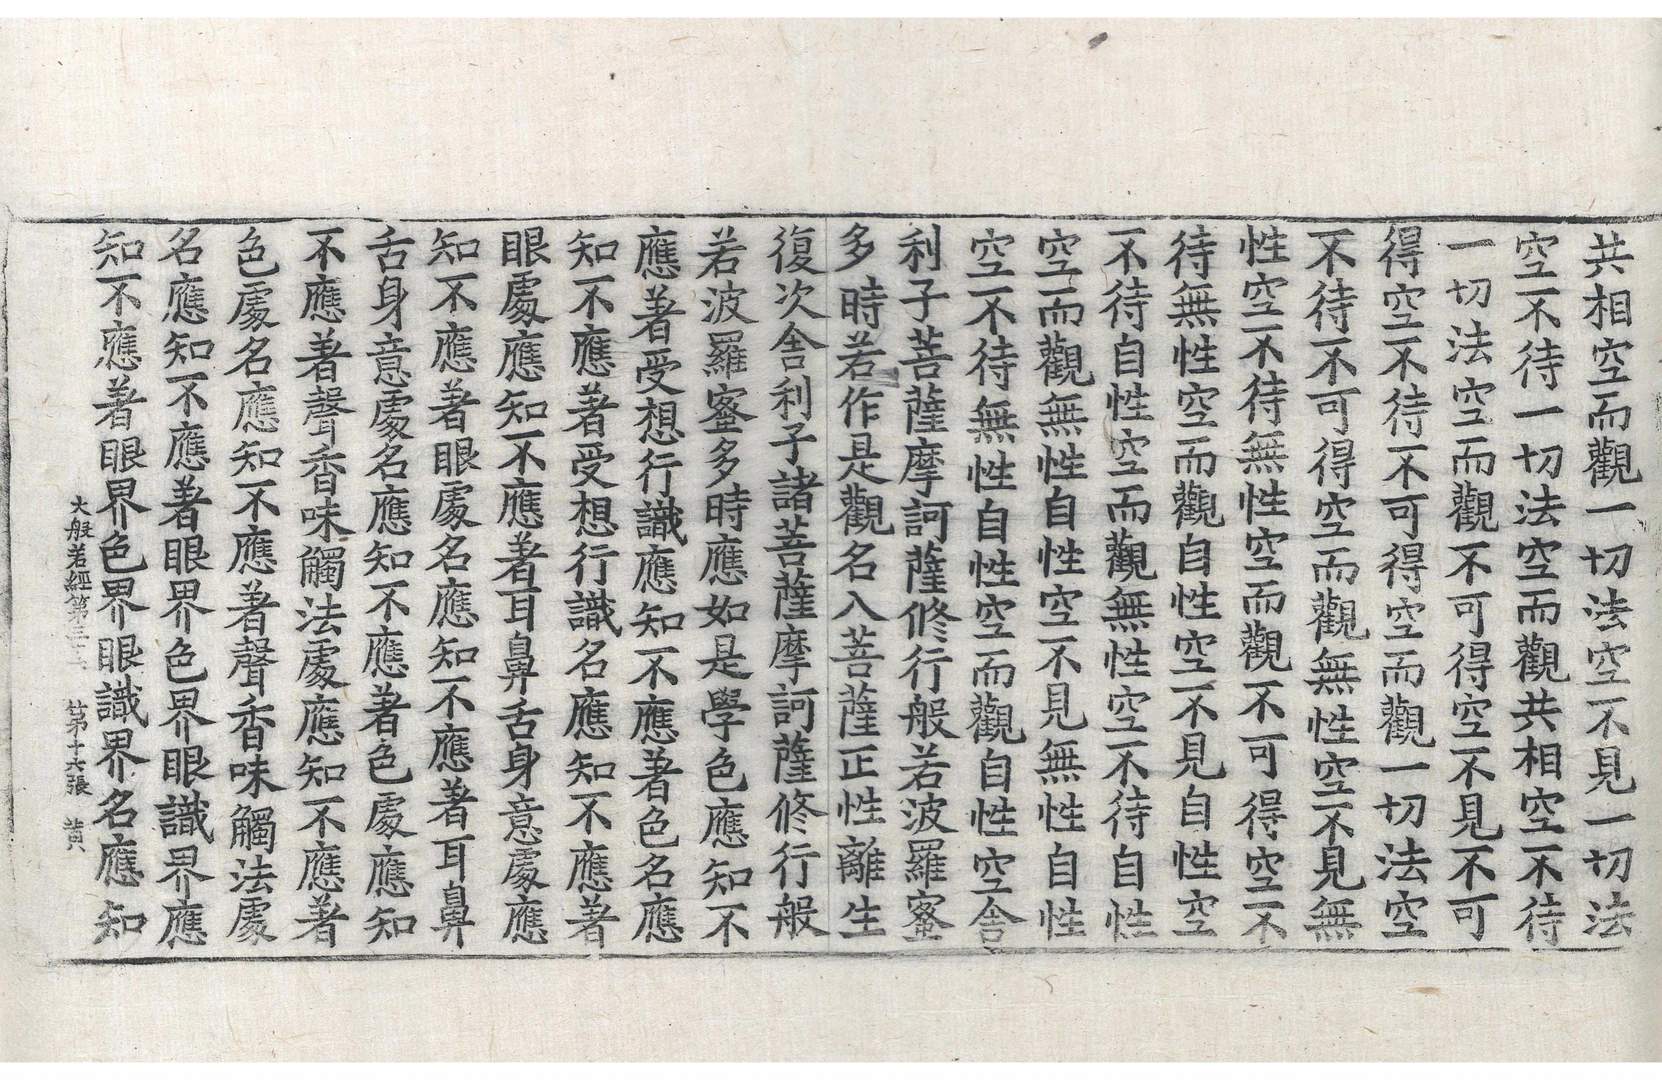 共相空而觀一切法空不見一切法
空不待一切法空而觀共相空不待
一切法空而觀不可得空不見不可
得空不待不可得空而觀一切法空
不待不可得空而觀無性空不見無
性空不待無性空而觀不可得空不
待無性空而觀自性空不見自性空
不待自性空而觀無性空不待自性
空而觀無性自性空不見無性自性
空不待無性自性空而觀自性空舍
利子菩薩摩訶薩修行般若波羅蜜
多時若作是觀名入菩薩正性離生
復次舍利子諸菩薩摩訶薩修行般
若波羅蜜多時應如是學色應知不
應著受想行識應知不應著色名應
知不應著受想行識名應知不應著
眼處應知不應著耳鼻舌身意處應
知不應著眼處名應知不應著耳鼻
舌身意處名應知不應著色處應知
不應著聲香味觸法處應知不應著
色處名應知不應著聲香味觸法處
名應知不應著眼界色界眼識界應
知不應著眼界色界眼識界名應知
大般若經第三十六 第十六張 黃